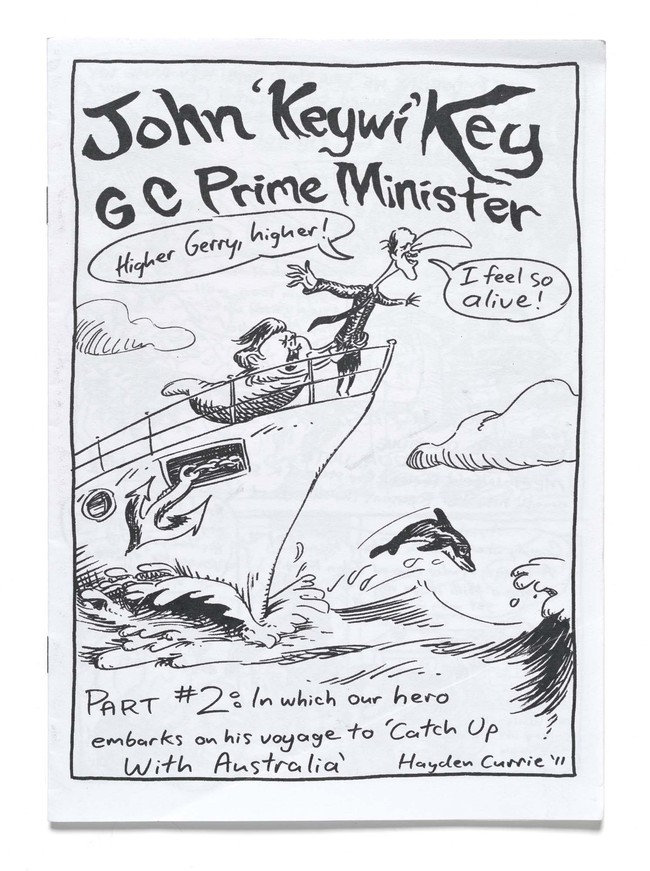 John 'Keywi' Key
GC Prime Minister
Higher Gerry, higher!
I feel so
alive!
PART #2: In which our hero
embarks on his voyage to 'Catch Up
With Australia'
Hayden Currie '11